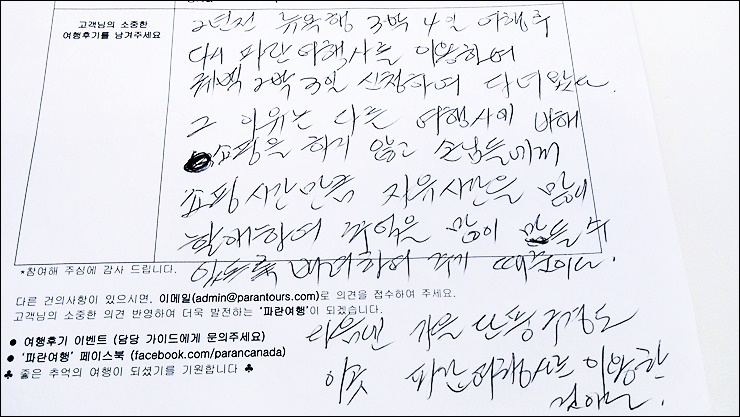 고객님의 소중한
여행후기를 남겨주세요
2년전 뉴욕행 3박 4일 여행 후
다시 파란 여행사를 이용하여
퀘벡 2박 3일 신청하여 다녀왔다.
그 이유는 다른 여행사에 비해
쇼핑을 하지 않고 손님들에게
쇼핑시간만큼 자유시간을 많이
할애하여 추억을 많이 만들 수
있도록 배려하여 주기 때문이다.
*참여해 주심에 감사 드립니다.
다른 건의사항이 있으시면, 이메일(admin@parantours.com)로 의견을 접수하여 주세요.
고객님의 소중한 의견 반영하여 더욱 발전하는 '파란여행'이 되겠습니다.
● 여행후기 이벤트 (담당 가이드에게 문의주세요)
● '파란여행' 페이스북 (facebook.com/parancanada)
♣ 좋은 추억의 여행이 되셨기를 기원합니다 ♣
다음엔 가을 단풍 구경도
이곳 파란여행사를 이용할